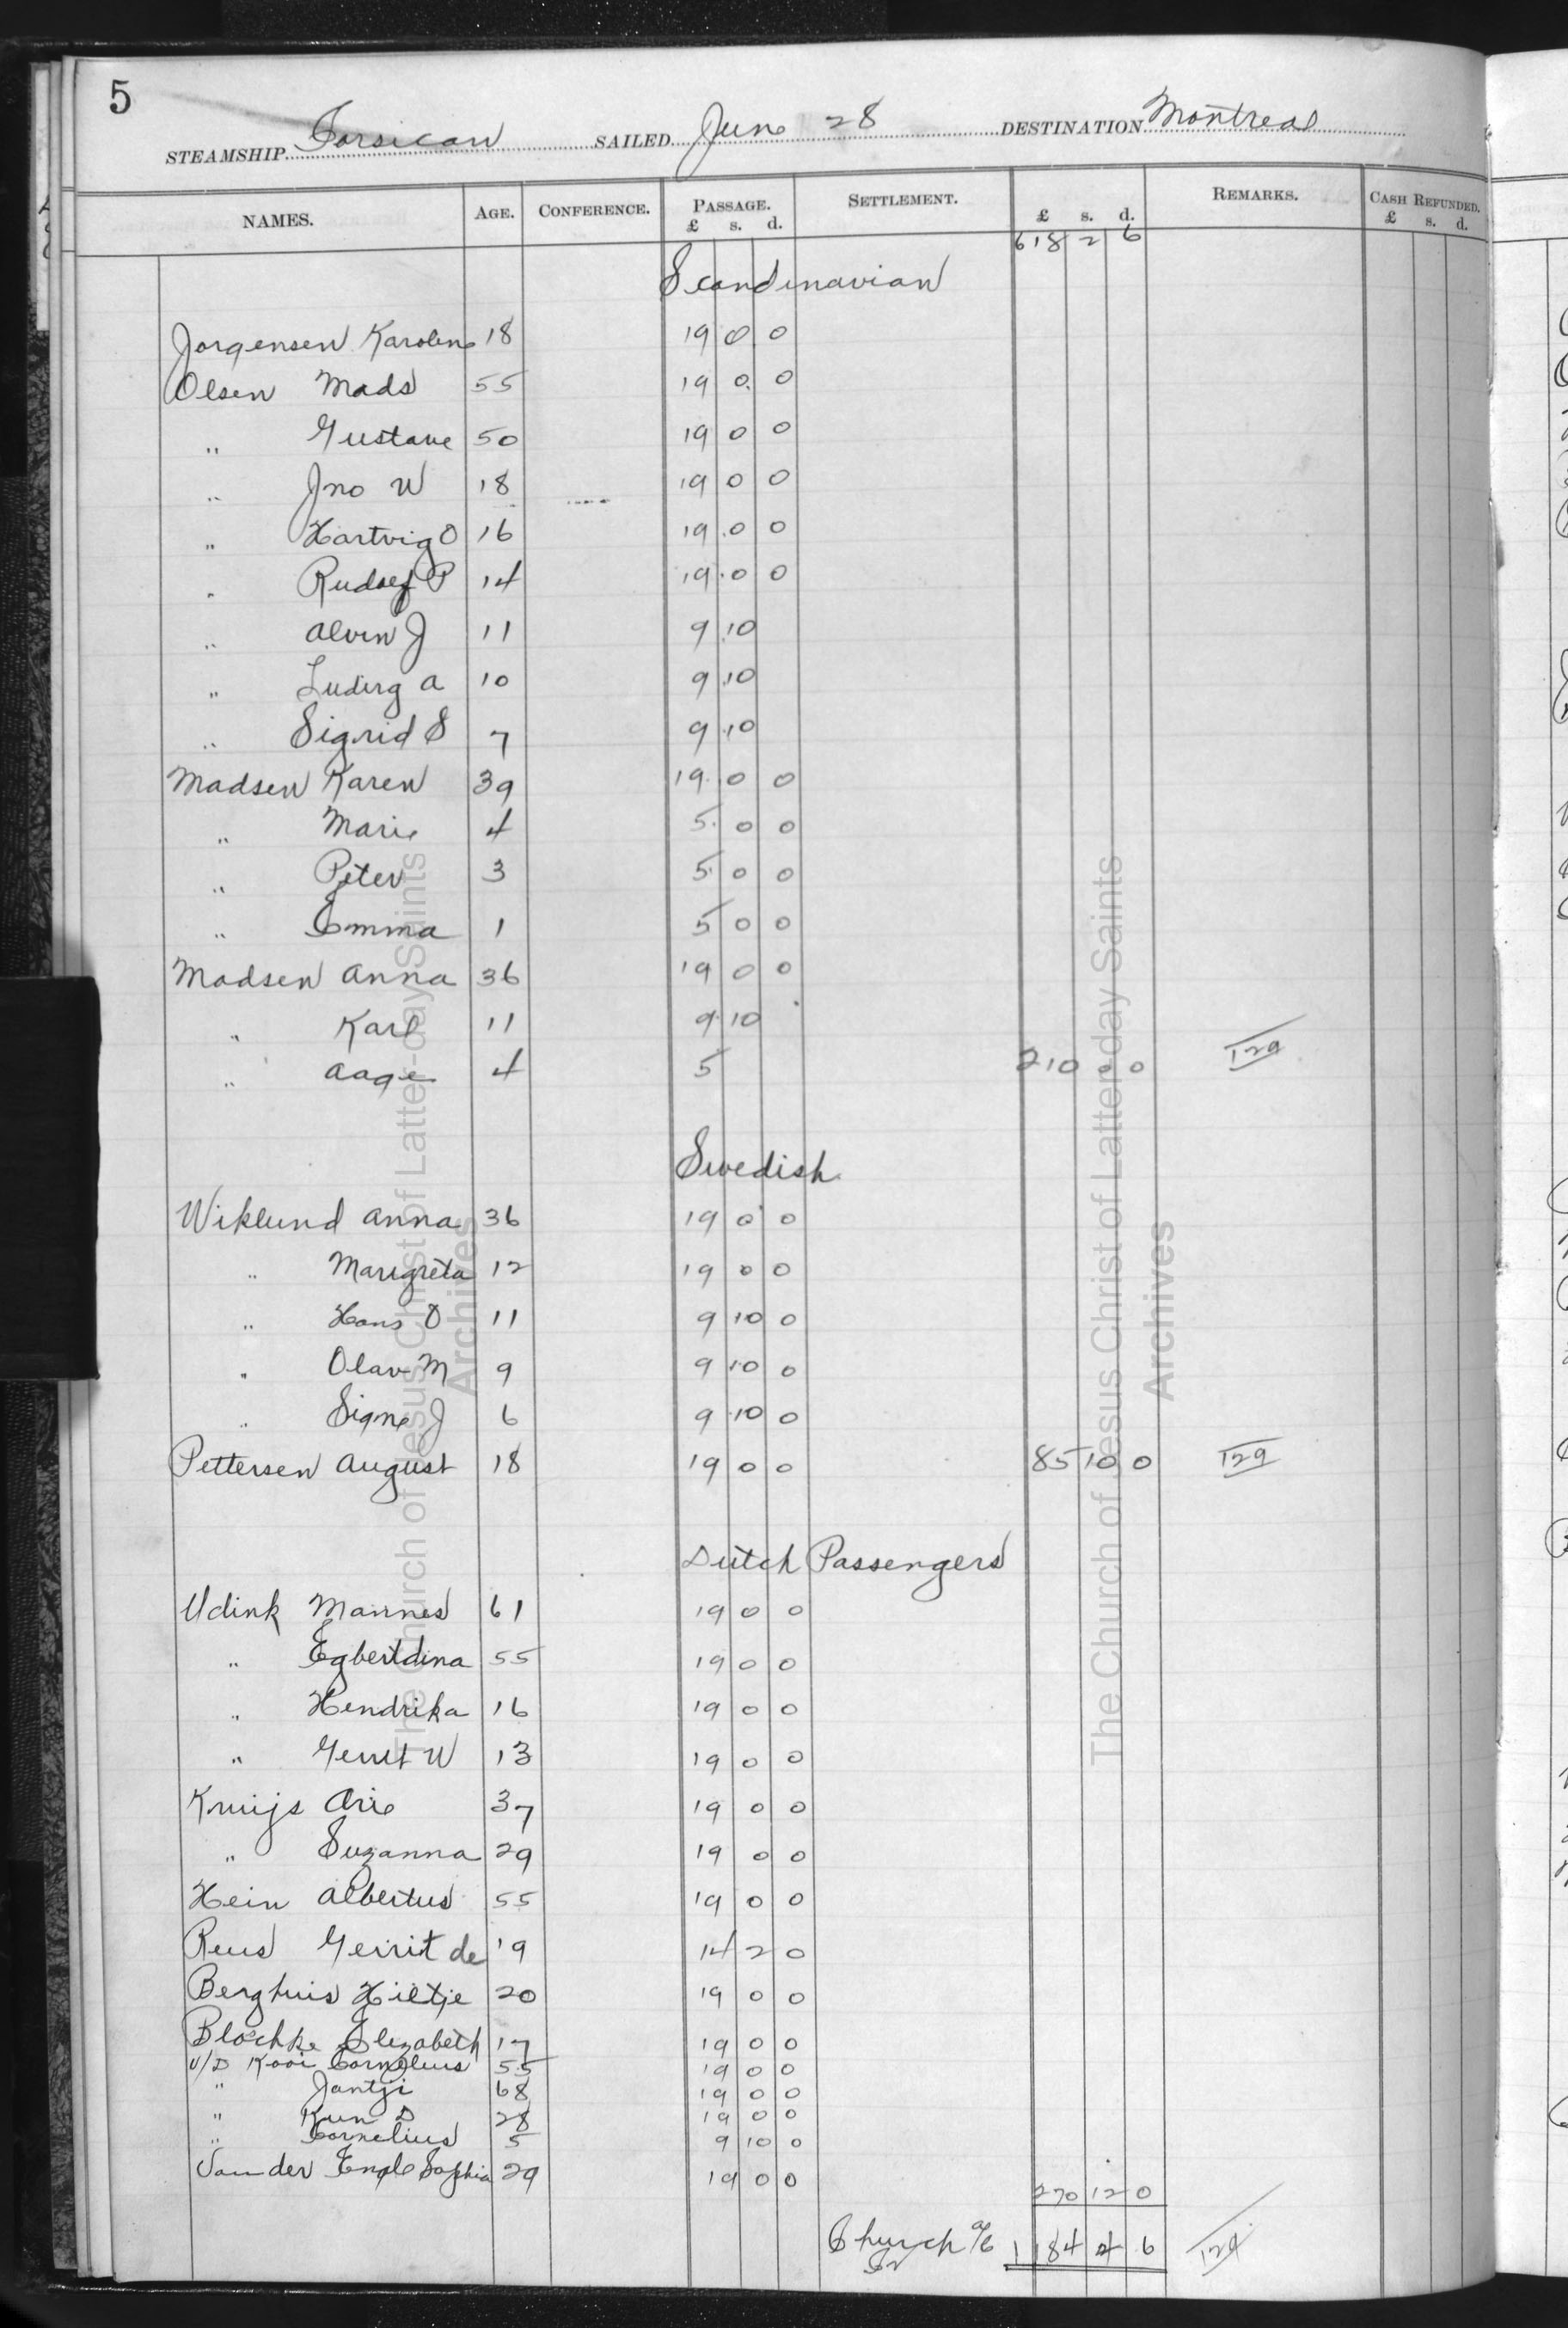 5
STEAMSHIP Corsican SAILED June 28 DESTINATION Montreal
NAMES. AGE. CONFERENCE. PASSAGE. £ s. d. SETTLEMENT. £ s. d. REMARKS. CASH REFUNDED. £ s. d.
618 2 6
Scandinavian
Jorgensen Karoline 18 19 0 0
Olsen Mads 55 19 0 0
" Gustave 50 19 0 0
" Jno W 18 19 0 0
" Hartvig O 16 19 0 0
" Rudolf P 14 19 0 0
" Alvin J 11 9 10
" Ludvig A 10 9 10
" Sigrid S 7 9 10
Madsen Karen 39 19 0 0
" Marie 4 5 0 0
" Peter 3 5 0 0
" Emma 1 5 0 0
Madsen Anna 36 19 0 0
" Karl 11 9 10
" Aage 4 5 210 0 0 129
Swedish
Wiklund Anna 36 19 0 0
" Margreta 12 19 0 0
" Hans O 11 9 10 0
" Olav M 9 9 10 0
" Signe J 6 9 10 0
Pettersen August 18 19 0 0 85 10 0 129
Dutch Passengers
Udink Mannes 61 19 0 0
" Egbertdina 55 19 0 0
" Hendrika 16 19 0 0
" Gerrit W 13 19 0 0
Kruijs Arie 37 19 0 0
" Suzanna 29 19 0 0
Hein Albertus 55 19 0 0
Reus Gerrit de 19 14 2 0
Berghuis Hiltje 20 19 0 0
Blochke Elizabeth 17 19 0 0
V/D Kooi Cornelius 55 19 0 0
" Jantji 68 19 0 0
" Kun D 28 19 0 0
" Cornelius 5 9 10 0
Van der Engle Sophia 29 19 0 0
270 12 0
Church a/c 1184 4 6 129
Cr
The Church of Jesus Christ of Latter-day Saints
Archives
The Church of Jesus Christ of Latter-day Saints
Archives